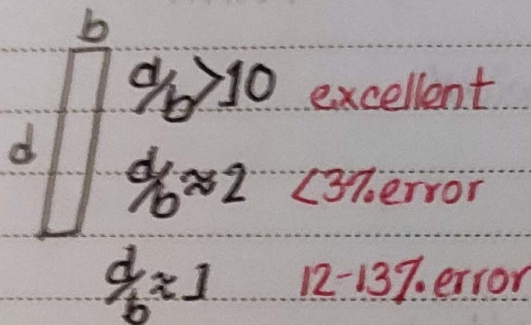 b
d/b>10 excellent
d
d/b≈2 <3%error
d/b≈1 12-13%error